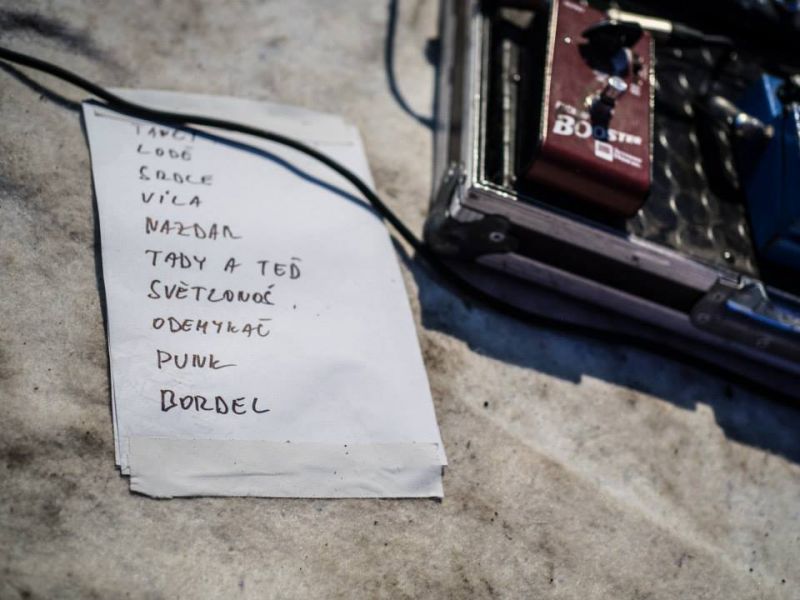 LODĚ
SRDCE
VÍLA
NAZDAR
TADY A TEĎ
SVĚTLONOČ
ODEMYKAČ
PUNK
BORDEL
BOOSTER